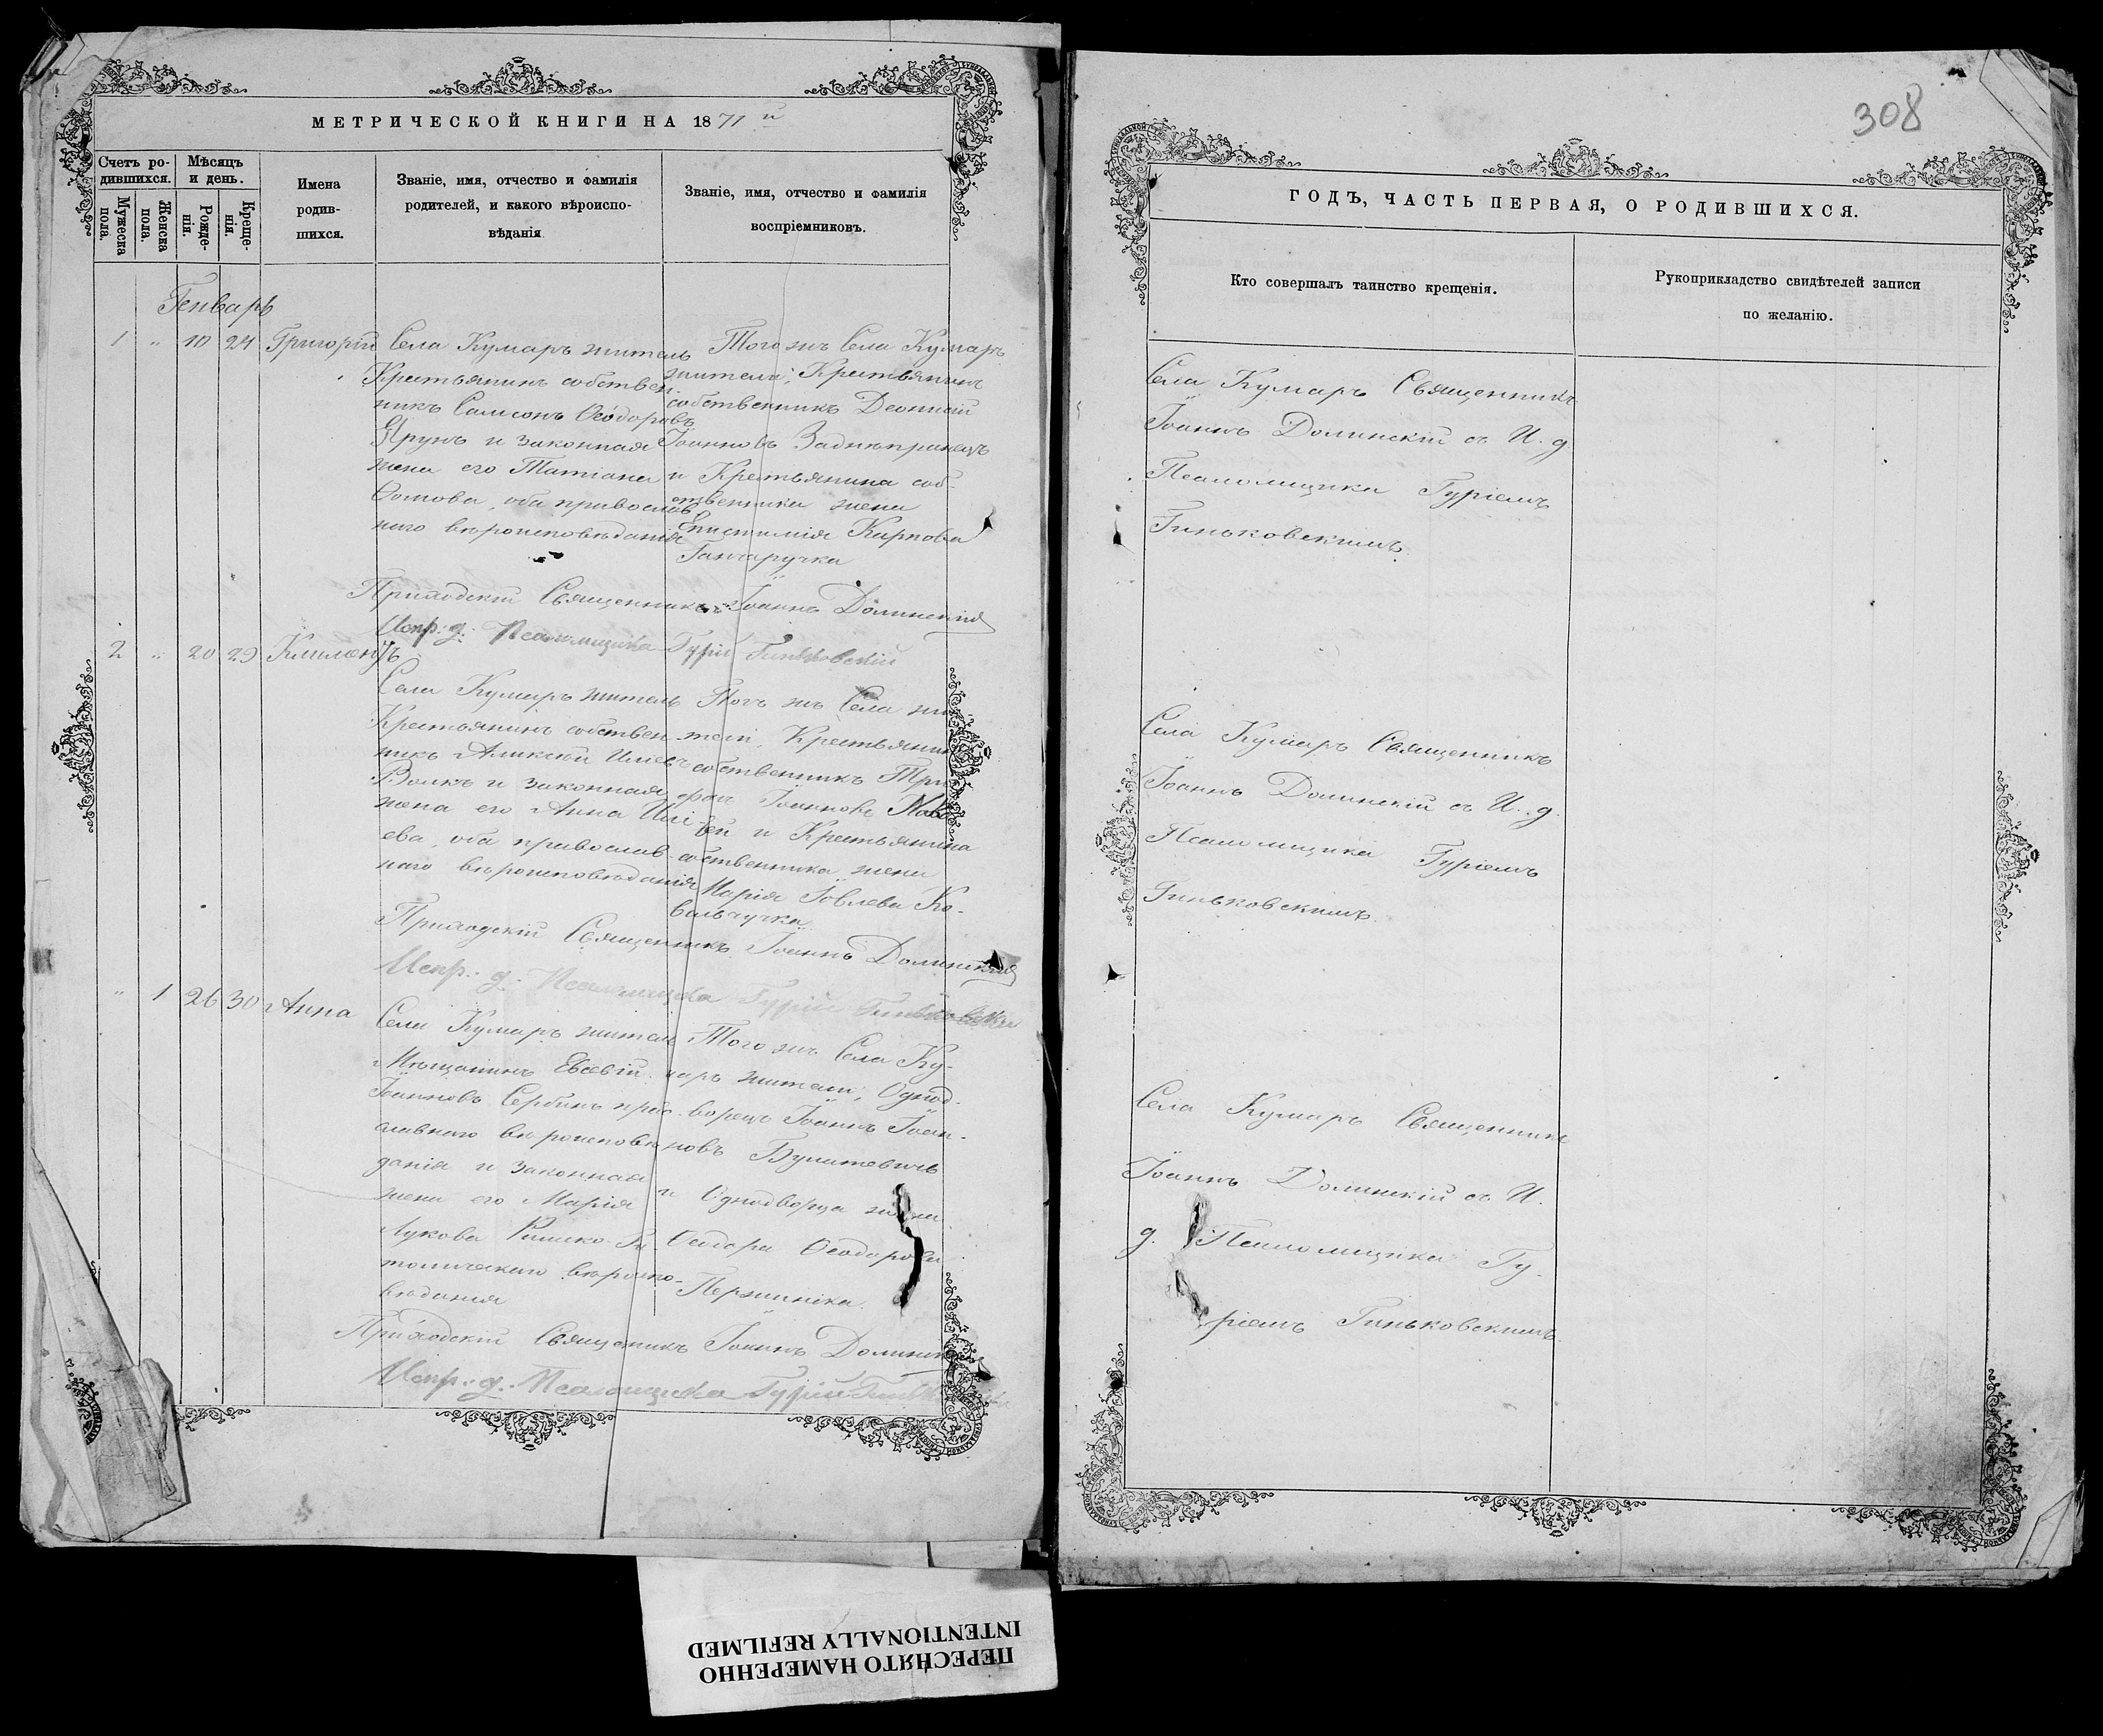 МЕТРИЧЕСКОЙ КНИГИ НА 1871 й
Счетъ ро-
дившихся.
Мѣсяцъ
и день.
Мужеска
пола.
Женска
пола.
Рожде-
нія.
Креще-
нія.
Имена
родив-
шихся.
Званіе, имя, отчество и фамилія
родителей, и какого вѣроиспо-
вѣданія
Званіе, имя, отчество и фамилія
воспріемниковъ.
Генварь
1 " 10 24 Григорій
Села Кумаръ житель
Крестьянинъ собствен
никъ Самсонъ Ѳеодоровъ
и законная
жена его Татіана
Ѳомова, оба православ
наго вѣроисповѣданія
Того жъ Села Кумаръ
жители; Крестьянинъ
собственникъ
Іоанновъ Заднѣпранецъ
и Крестьянина соб-
ственника жена
Епистимія Карпова
Ганчаручка
Приходскій Священникъ Іоаннъ Долинскій
Испр. д. Псаломщика Гурій Гиньковскій
2 " 20 29 Климентъ
Села Кумаръ житель
Крестьянинъ собствен
никъ Алексій Иліевъ
Волкъ и законная
жена его Анна Илі-
ева, оба православ-
наго вѣроисповѣданія
Тогъ жъ Села жи-
тели Крестьянин
собственникъ Три
фонъ Іоанновъ
и Крестьянина
собственника жена
Марія Іовлева Ко-
вальчучка
Приходскій Священникъ Іоаннъ Долинскій
Испр. д. Псаломщика Гурій Гиньковскій
" 1 26 30 Анна
Села Кумаръ житель
Мѣщанинъ Евсевій
Іоанновъ Сербинъ пра-
славнаго вѣроисповѣ
данія и законная
жена его Марія
Лукова Римско-Ка
толическаго вѣроиспо-
вѣданія
Того жъ Села Ку-
маръ жители; Однод-
ворецъ Іоаннъ Іоан-
новъ Булатевичъ
и Однодворца жена
Ѳеодорова
Приходскій Священникъ Іоаннъ Долинск
Испр. д. Псаломщика Гурій
308
ГОДЪ, ЧАСТЬ ПЕРВАЯ, О РОДИВШИХСЯ.
Кто совершалъ таинство крещенія.
Рукоприкладство свидѣтелей записи
по желанію.
Села Кумаръ Священникъ
Іоаннъ Долинскій съ И. д.
Псаломщика Гуріемъ
Гиньковскимъ.
Села Кумаръ Священникъ
Іоаннъ Долинскій съ И. д.
Псаломщика Гуріемъ
Гиньковскимъ.
Села Кумаръ Священникъ
Іоаннъ Долинскій съ И.
д. Псаломщика Гу-
ріемъ Гиньковскимъ
ПЕРЕСНЯТО НАМЕРЕННО
INTENTIONALLY REFILMED